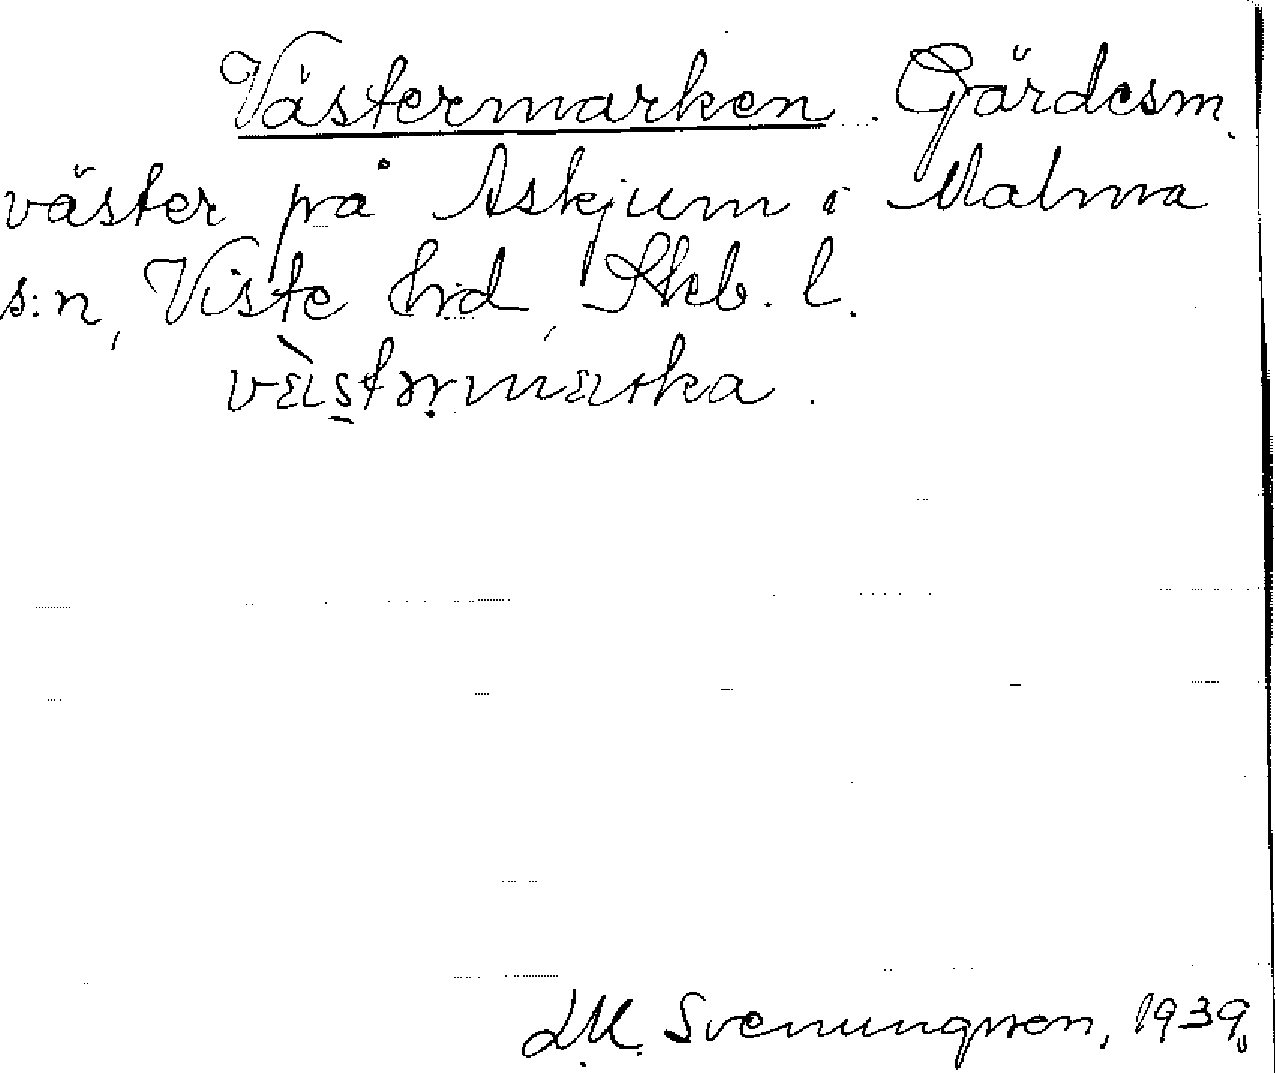 Västermarken. Gärdesm.
väster på Askjum i Malma
s:n, Viste hrd, Skb. l.
L.M. Svenungsson, 1939.